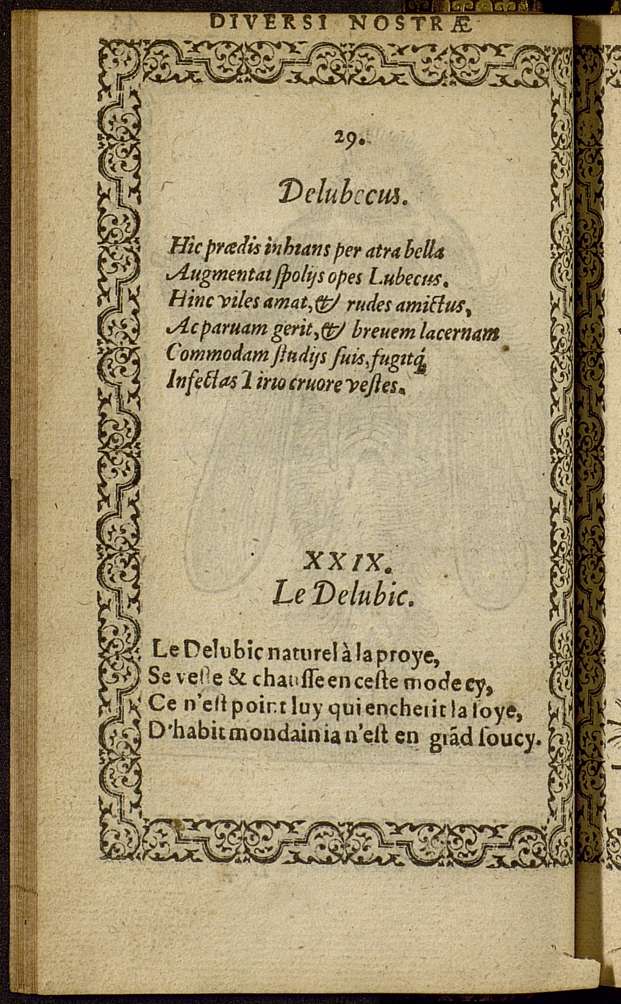 DIVERSI NOSTRÆ
29.
Delubecus.
Hic prædis inhians per atra bella
Augmentat ſpolijs opes Lubecus.
Hinc viles amat, & rudes amictus,
Ac paruam gerit, & breuem lacernam
Commodam ſtudijs ſuis, fugitq́;
Infectas Tirio cruore veſtes.
XXIX.
Le Delubic.
Le Delubic naturel à la proye,
Se veſte & chauſſe en ceſte mode cy,
Ce n'eſt point luy qui encherit la ſoye,
D'habit mondain ia n'eſt en grãd ſoucy.